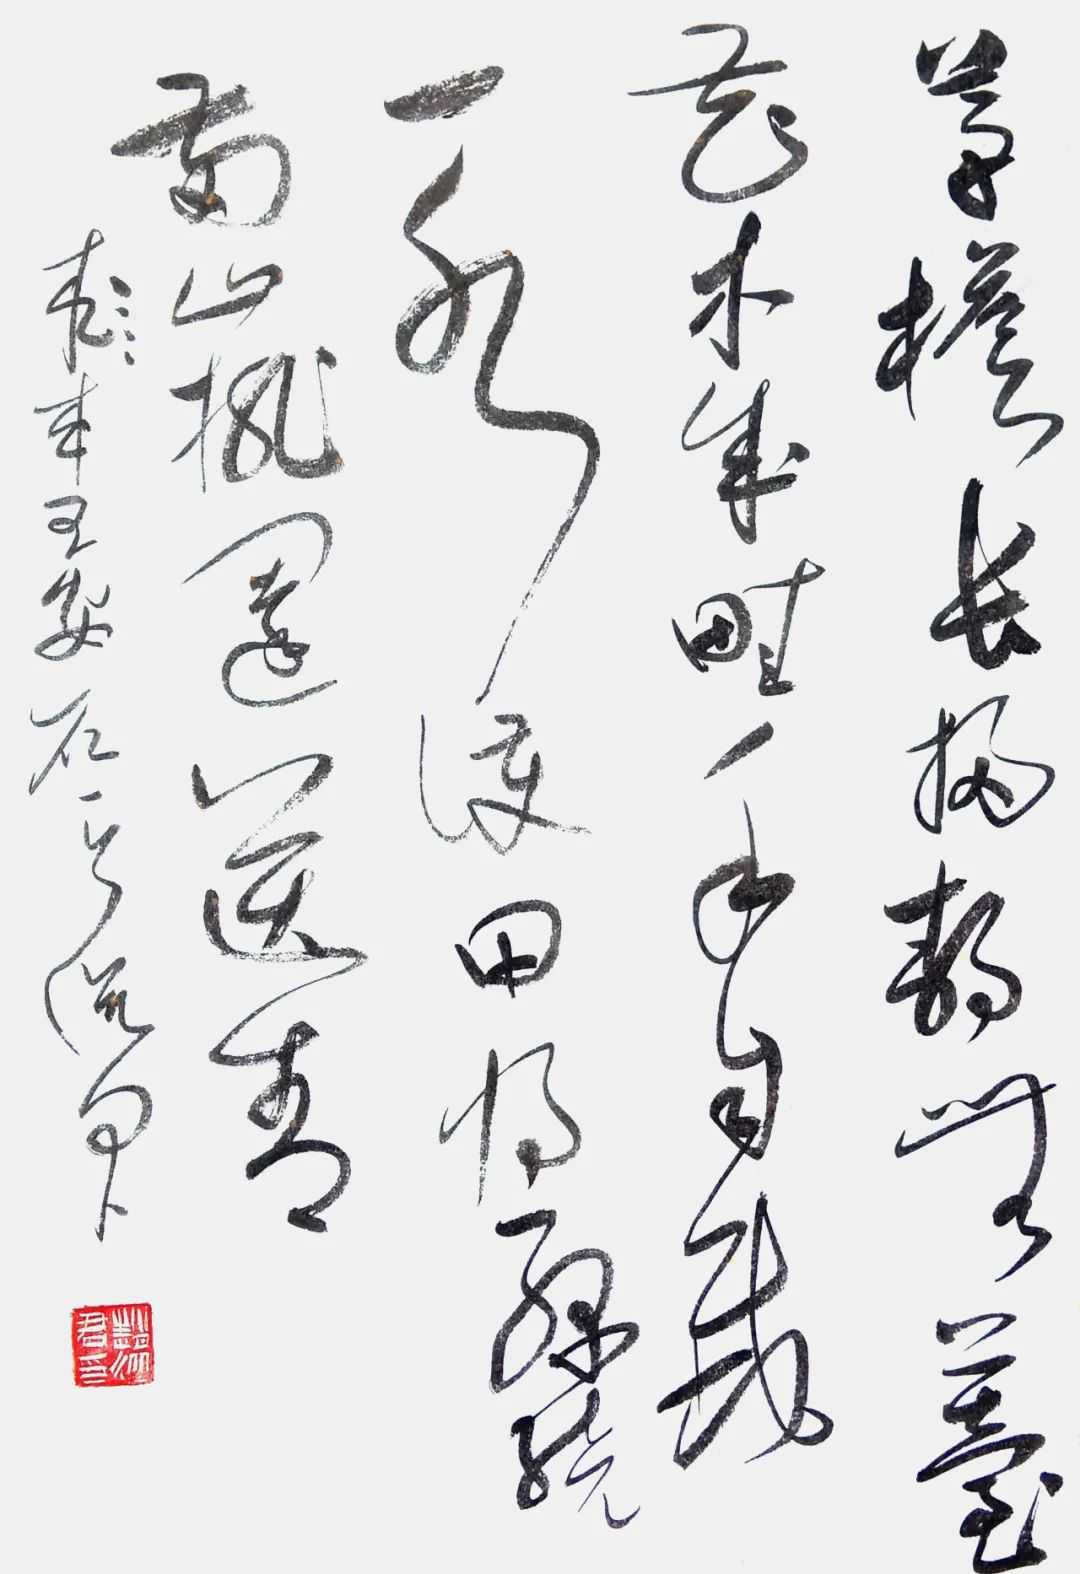 茅檐长扫静無苔
花木成畦手自栽
一水護田将绿绕
两山排闼送青
王安石
君印